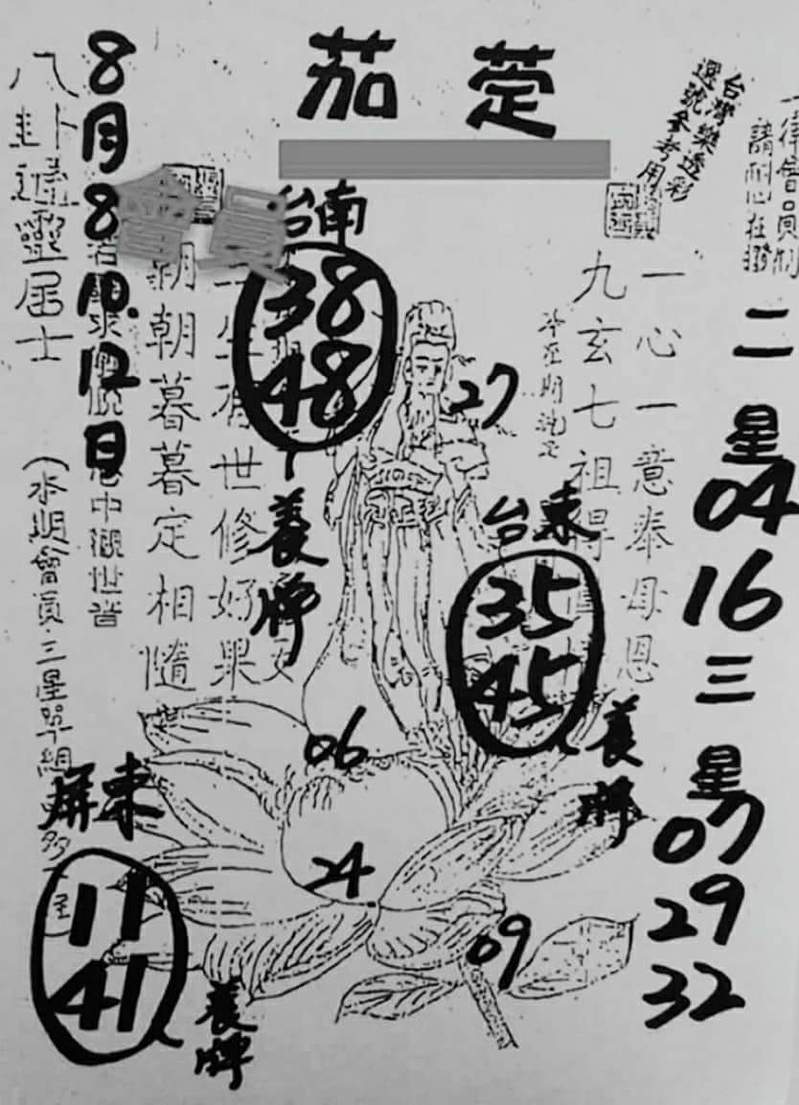 茄萣
台灣樂透彩
選號參考用
一律會員制
請耐心在撥
二星
04
16
三星
07
29
32
一心一意奉母恩
九玄七祖得
台南
38
48
養牌
27
台東
35
45
養牌
世修好果
朝朝暮暮定相隨
8月8.10.12日
中觀世音
八卦
靈居士
(本期會員三星單組
屏東
11
41
養牌
06
24
09